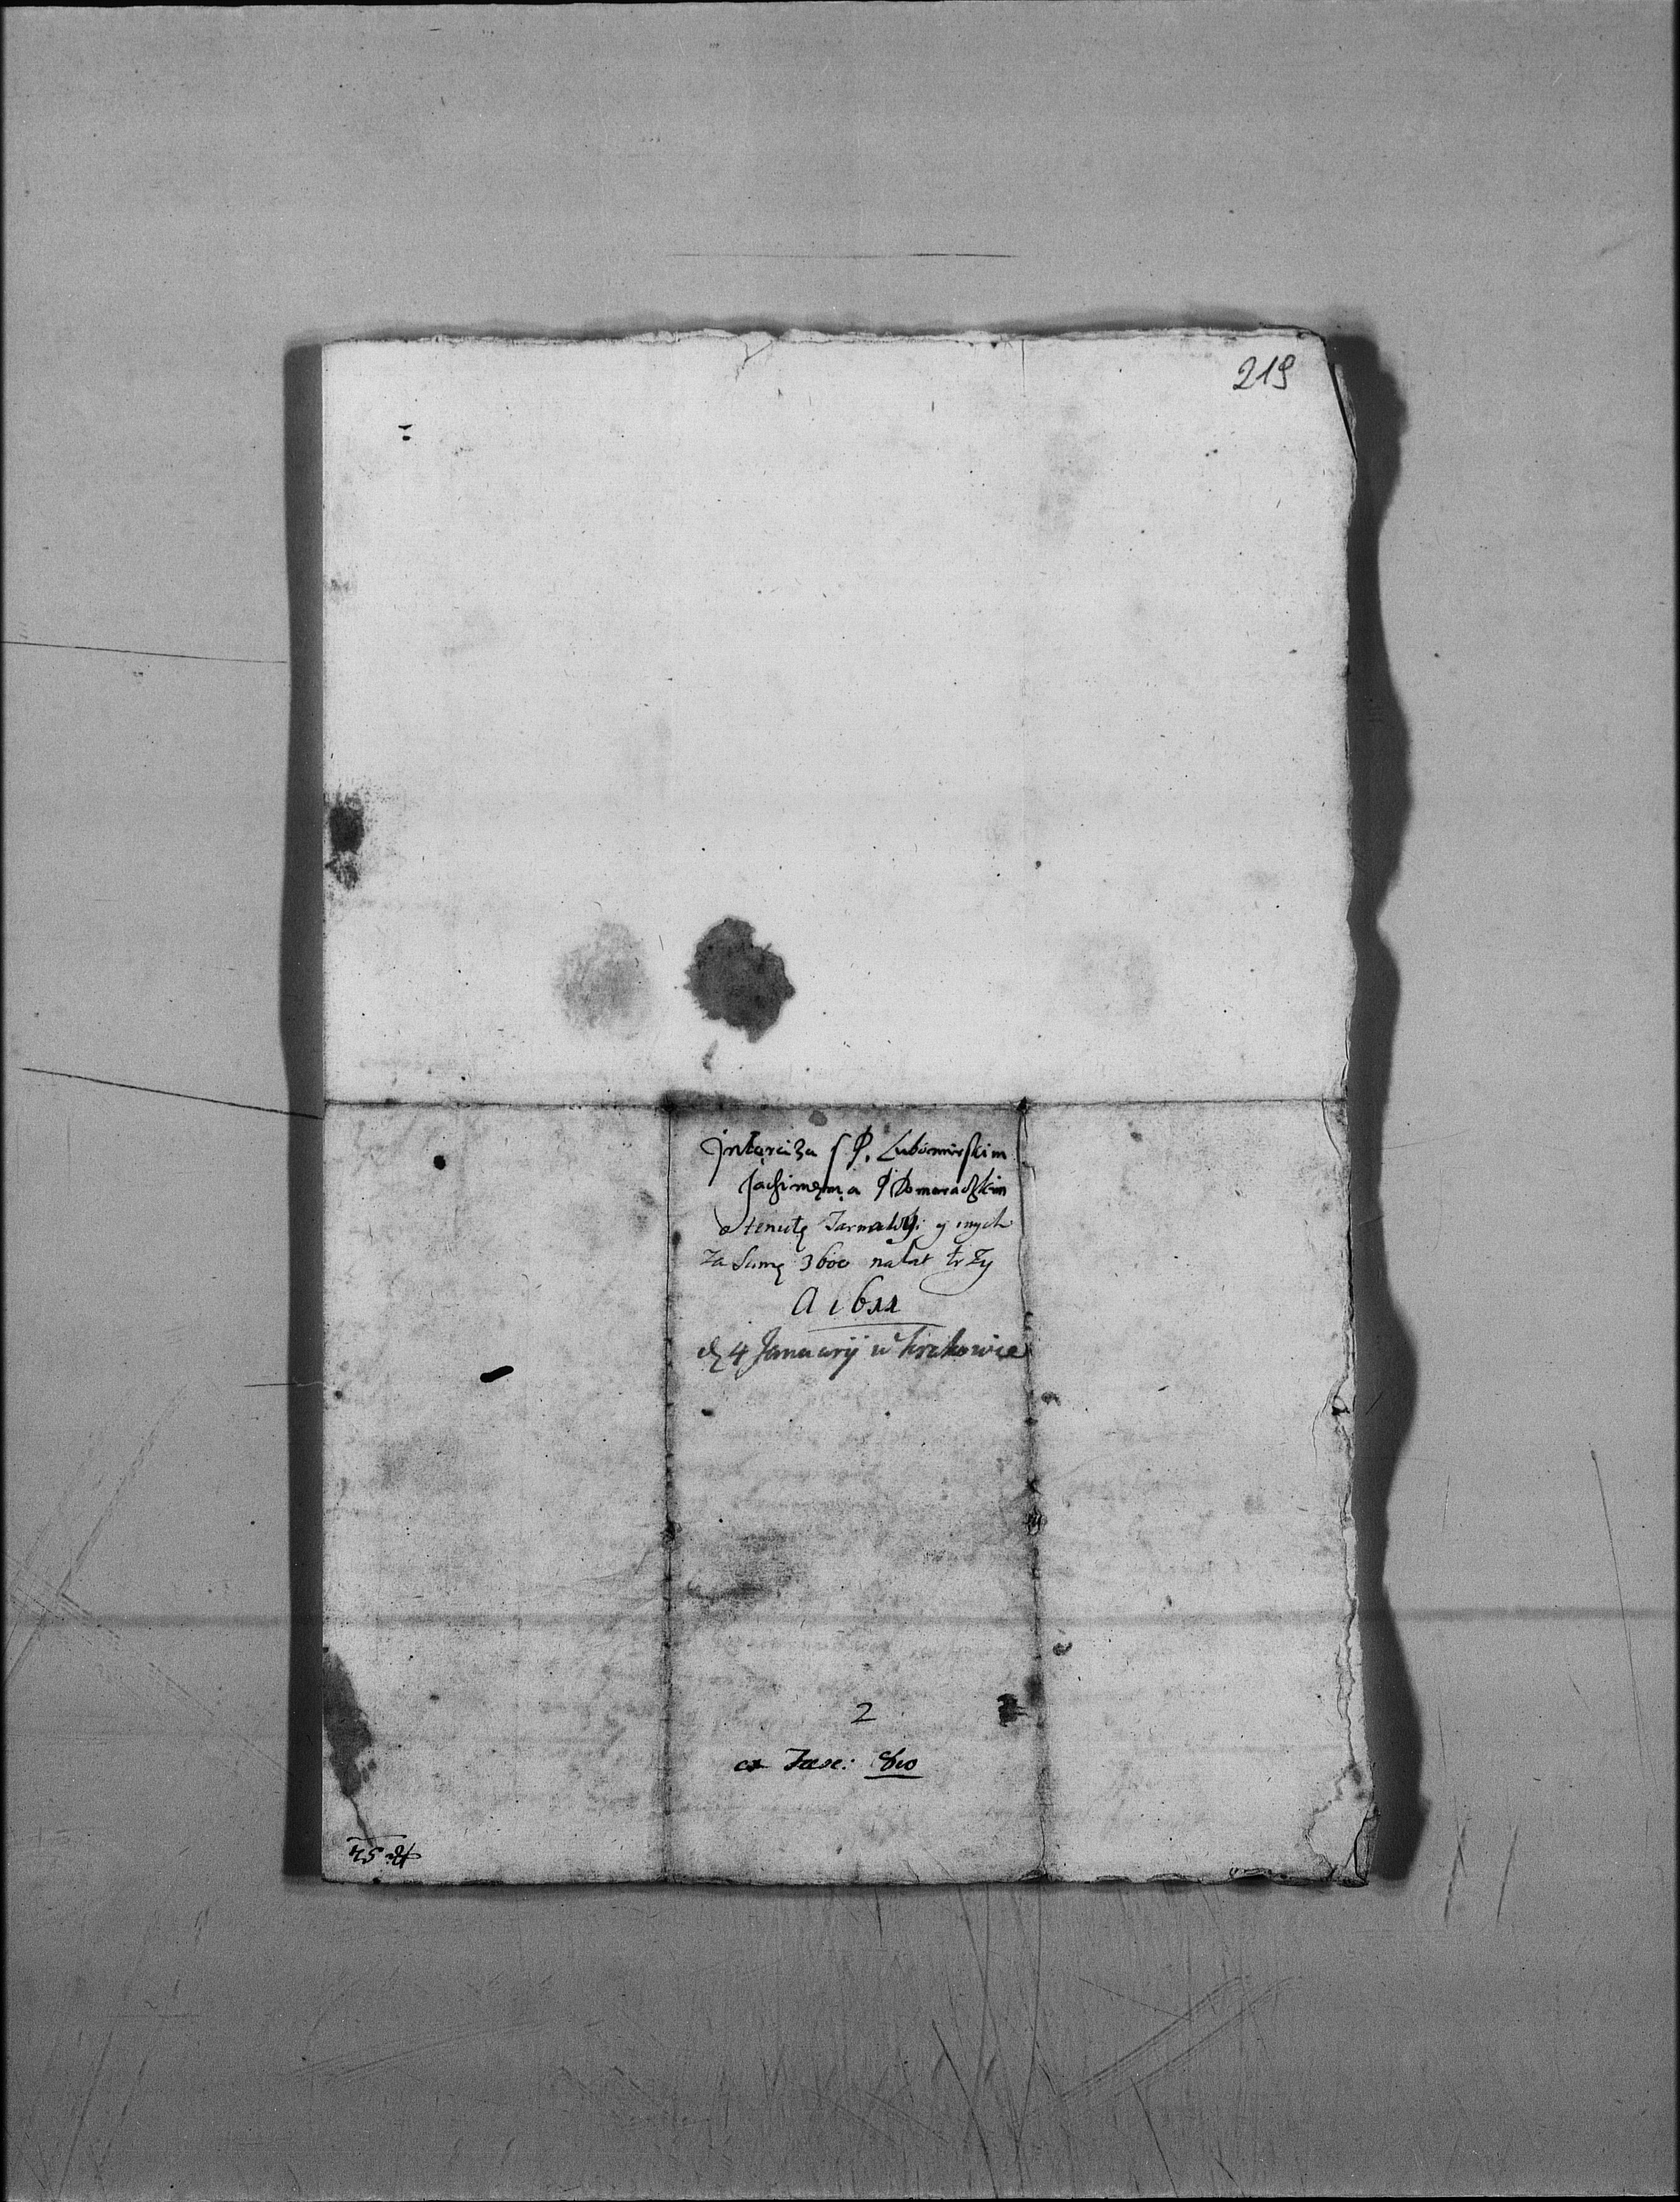 219
Interciza s P. Lubomirskim
Jachimem a P Domaradzkim
o tenutę Tarnawy: y inych
za Sumę 3600 na lat trzy
A 1611
d. 4 January w Krakowie
2
ex Fasc: 810